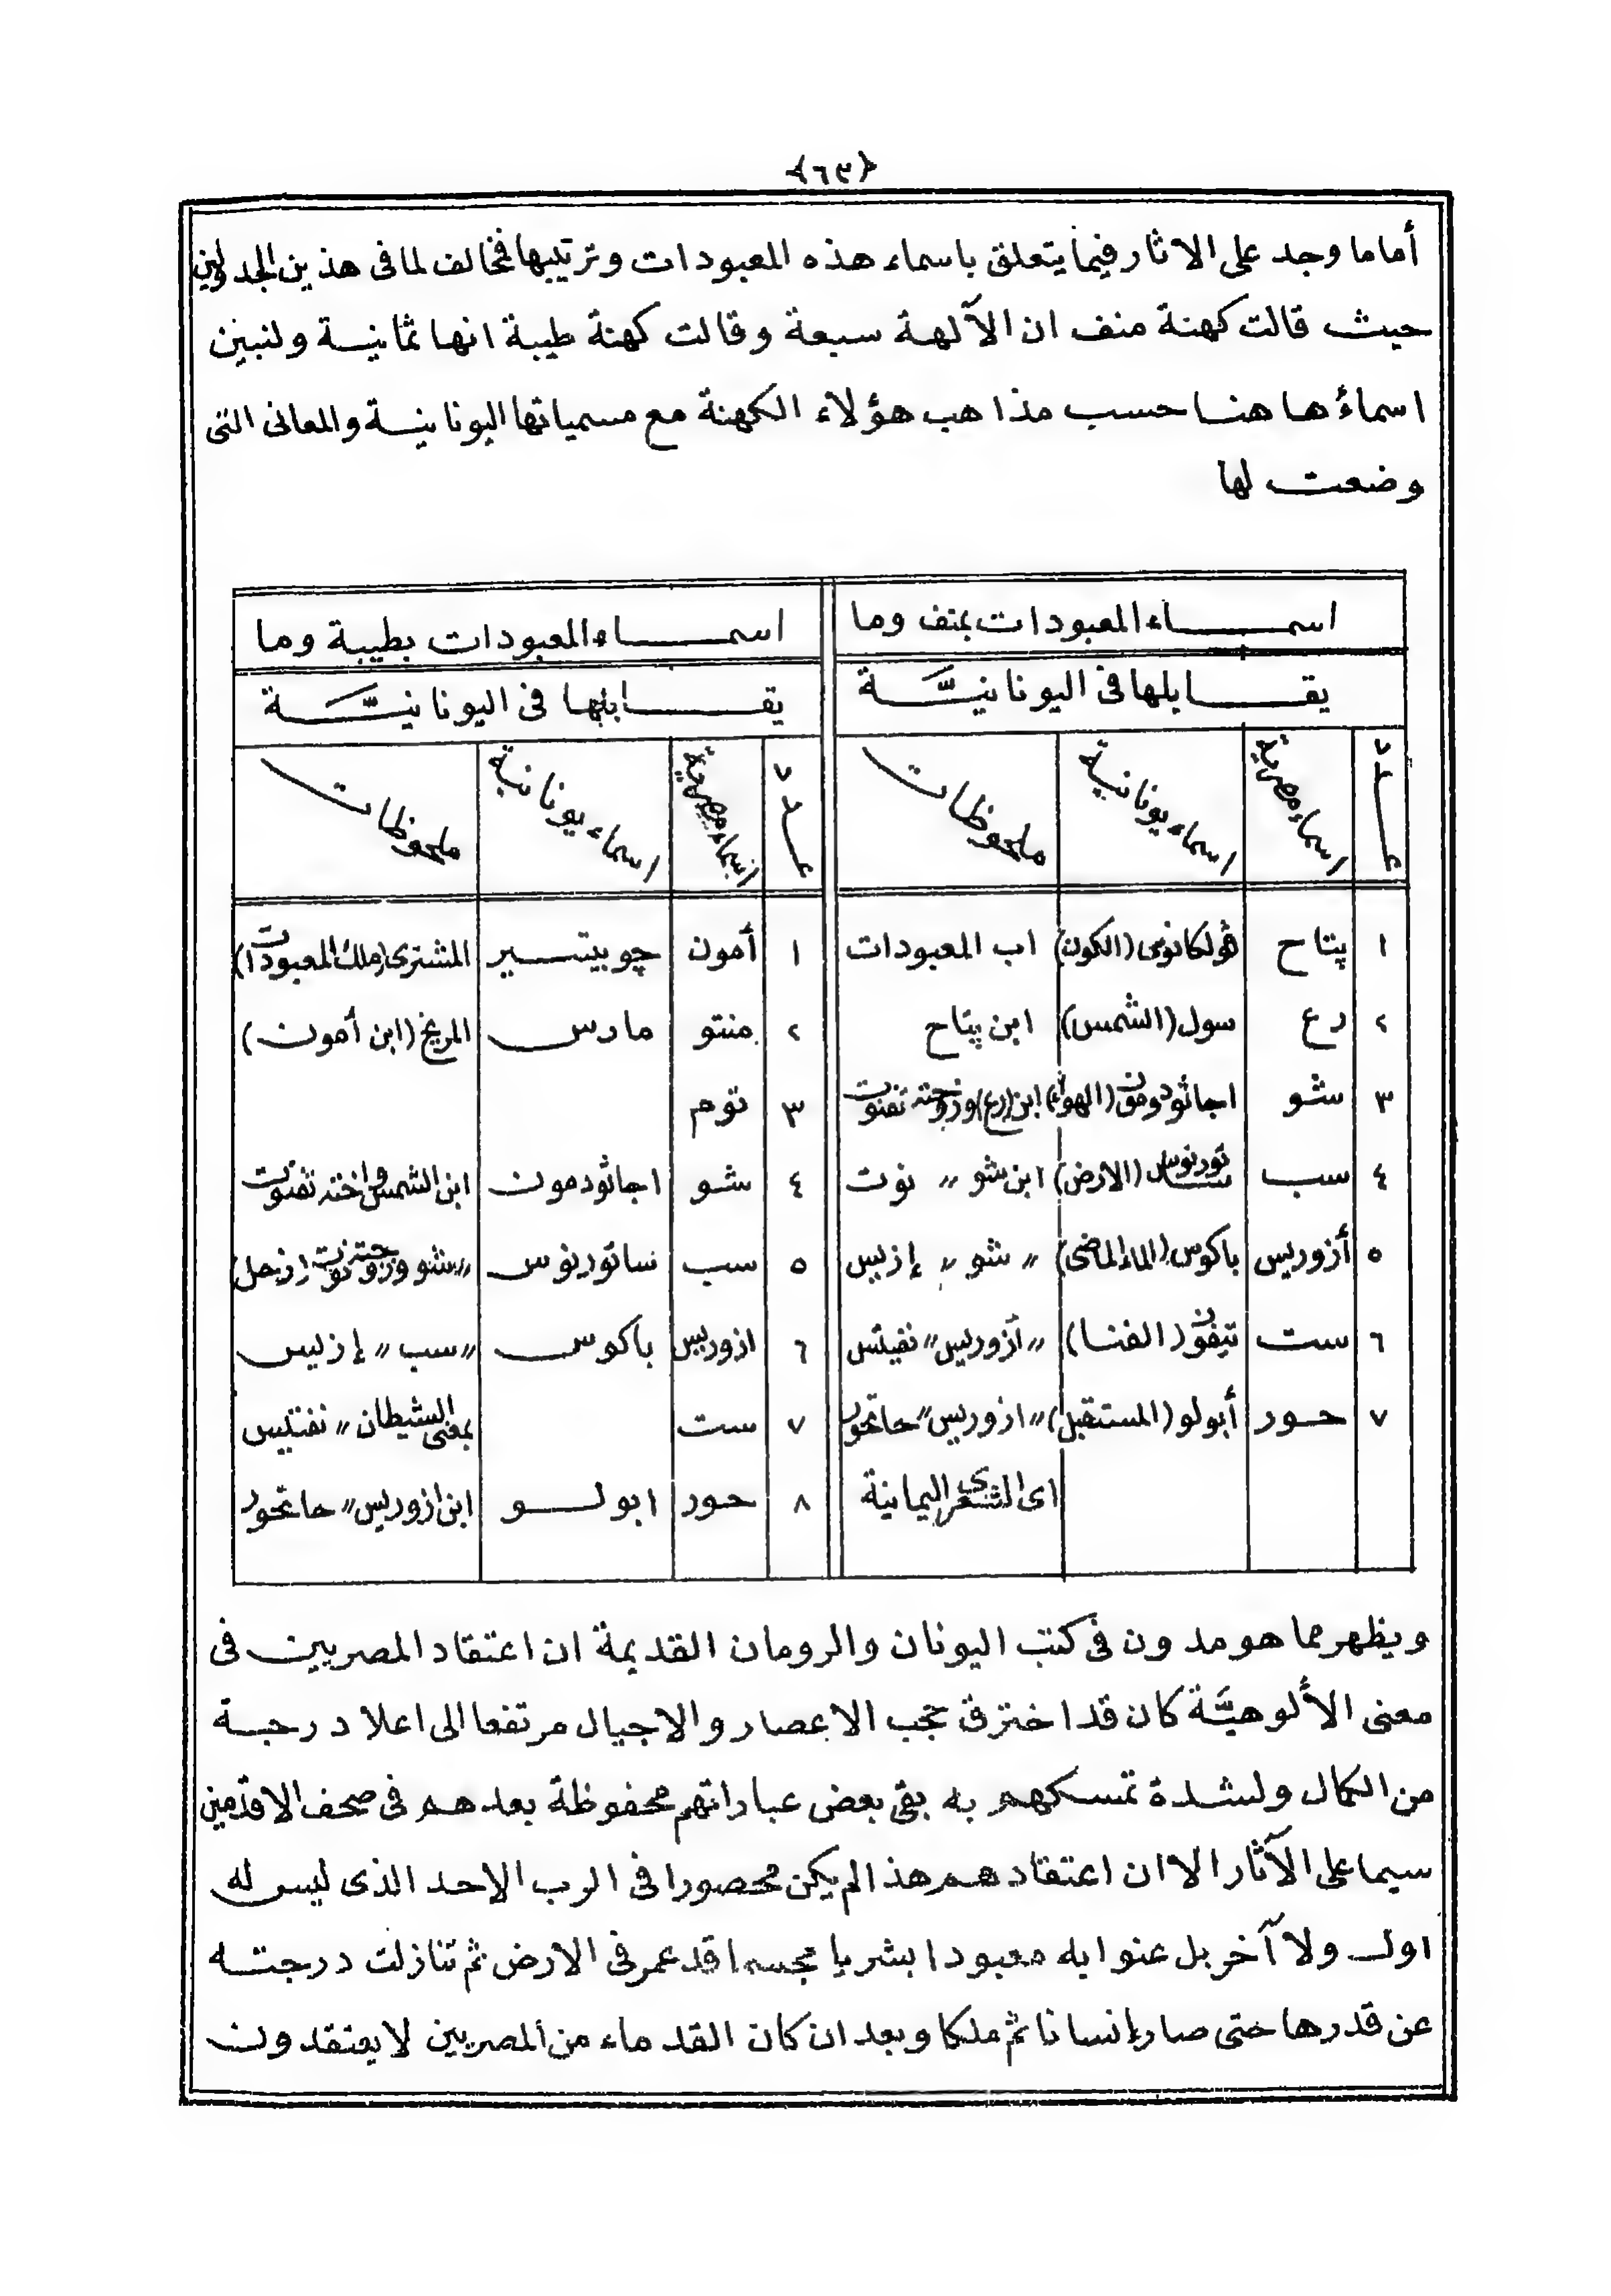 ﴿٦٩﴾
أما ما وجد على الاثار فيما يتعلق باسماء هذه المعبودات وترتيبها فمخالف لما فى هذين الجدولين
حيث قالت كهنة منف ان الآلهة سبعة وقالت كهنة طيبة انها ثمانية ولنبين
اسماءُها هنا حسب مذاهب هؤلاء الكهنة مع مسمياتها اليونانية والمعانى التى
وضعت لها
اسماء المعبودات بمنف وما
يقابلها فى اليونانيَّة
عدد اسماء مصرية اسماء يونانية ملحوظات
١ پتاح ڤولكانوس (الكون) اب المعبودات
٢ رع سول (الشمس) ابن پتاح
٣ شو اجاثودومون (الهواء) ابن (رع) وزوجته تفنوت
٤ سب ساتورنوس (الارض) ابن شو " نوت
٥ أزوريس باكوس (الماء الماضى) " شو " إزيس
٦ ست تيفون (الفنا) " أزوريس " نفيتس
٧ حور أبولو (المستقبل) " ازوريس " حاتحور
اى الشعرى اليمانية
اسماء المعبودات بطيبة وما
يقابلها فى اليونانيَّة
عدد اسماء مصرية اسماء يونانية ملحوظات
١ أمون چوبيتير المشترى (ملك المعبودات)
٢ منتو مارس المريخ (ابن أمون)
٣ توم
٤ شو اجاثودمون ابن الشمس واخته تفنوت
٥ سب ساتورنوس " شو وزوجته نوت (زحل)
٦ ازوريس باكوس " سب " إزيس
٧ ست بمعنى الشيطان " نفتيس
٨ حور ابولو ابن ازوريس " حاتحور
ويظهر مما هو مدون فى كتب اليونان والرومان القديمة ان اعتقاد المصريين فى
معنى الألوهيَّة كان قد اخترق حجب الاعصار والاجيال مرتفعا الى اعلا درجة
من الكمال ولشدة تمسكهم به بقى بعض عباراتهم محفوظة بعدهم فى صحف الاقدمين
سيما على الآثار الا ان اعتقادهم هذا لم يكن محصورا فى الرب الاحد الذى ليس له
اول ولا آخر بل عنوا به معبودا بشريا مجسما قد عمر فى الارض ثم تنازلت درجته
عن قدرها حتى صار إنسانا ثم ملكا وبعد ان كان القدماء من المصريين لا يعتقدون